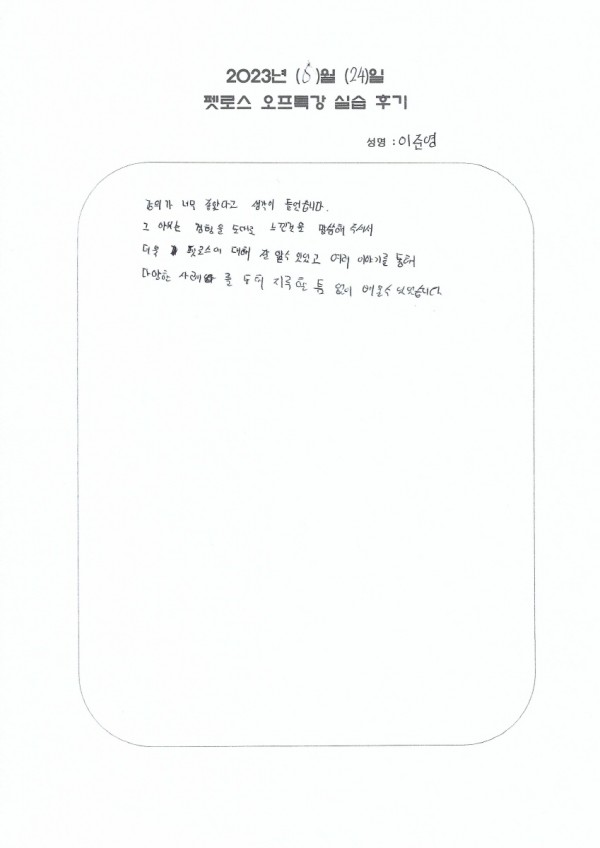 2023년 (8)월 (24)일
펫로스 오프특강 실습 후기
성명 : 이준영
강의가 너무 좋았다고 생각이 들었습니다.
그 이유는 경험을 느낀것을 말씀해 주셔서
더욱 펫로스에 대해 잘 알수 있었고 여러 이야기를 통해
다양한 사례를 지루할 틈 없이 배울수 있었습니다.